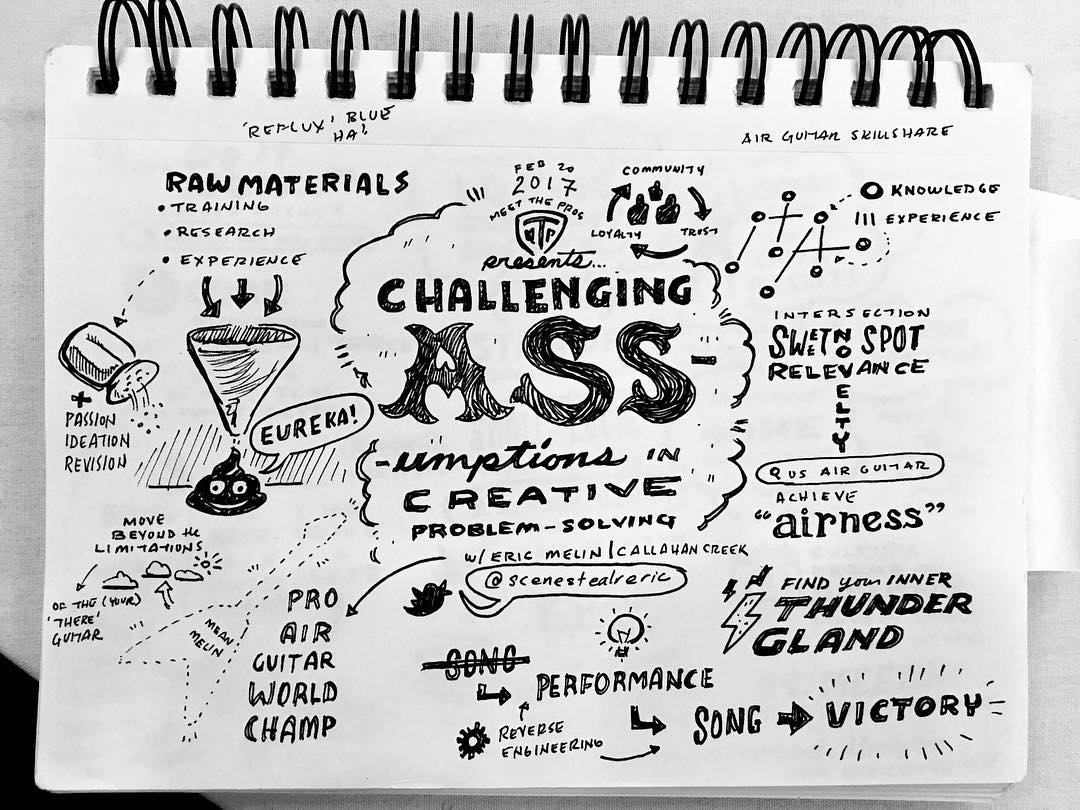 'REFLUX' BLUE
HA!
AIR GUITAR SKILLSHARE
RAW MATERIALS
• TRAINING
• RESEARCH
• EXPERIENCE
+
PASSION
IDEATION
REVISION
EUREKA!
FEB 20
2017
MEET THE PROS
MTP
presents...
CHALLENGING
ASS-
-umptions IN
CREATIVE
PROBLEM-SOLVING
W/ ERIC MELIN | CALLAHAN CREEK
@scenestealreric
COMMUNITY
LOYALTY
TRUST
KNOWLEDGE
III EXPERIENCE
INTERSECTION
SWEET SPOT
RELEVANCE
NOVELTY
US AIR GUITAR
ACHIEVE
"airness"
FIND your INNER
THUNDER
GLAND
MOVE
BEYOND the
LIMITATIONS
OF THE (YOUR)
'THERE'
GUITAR
MEAN
MELIN
PRO
AIR
GUITAR
WORLD
CHAMP
SONG
PERFORMANCE
REVERSE
ENGINEERING
SONG
VICTORY